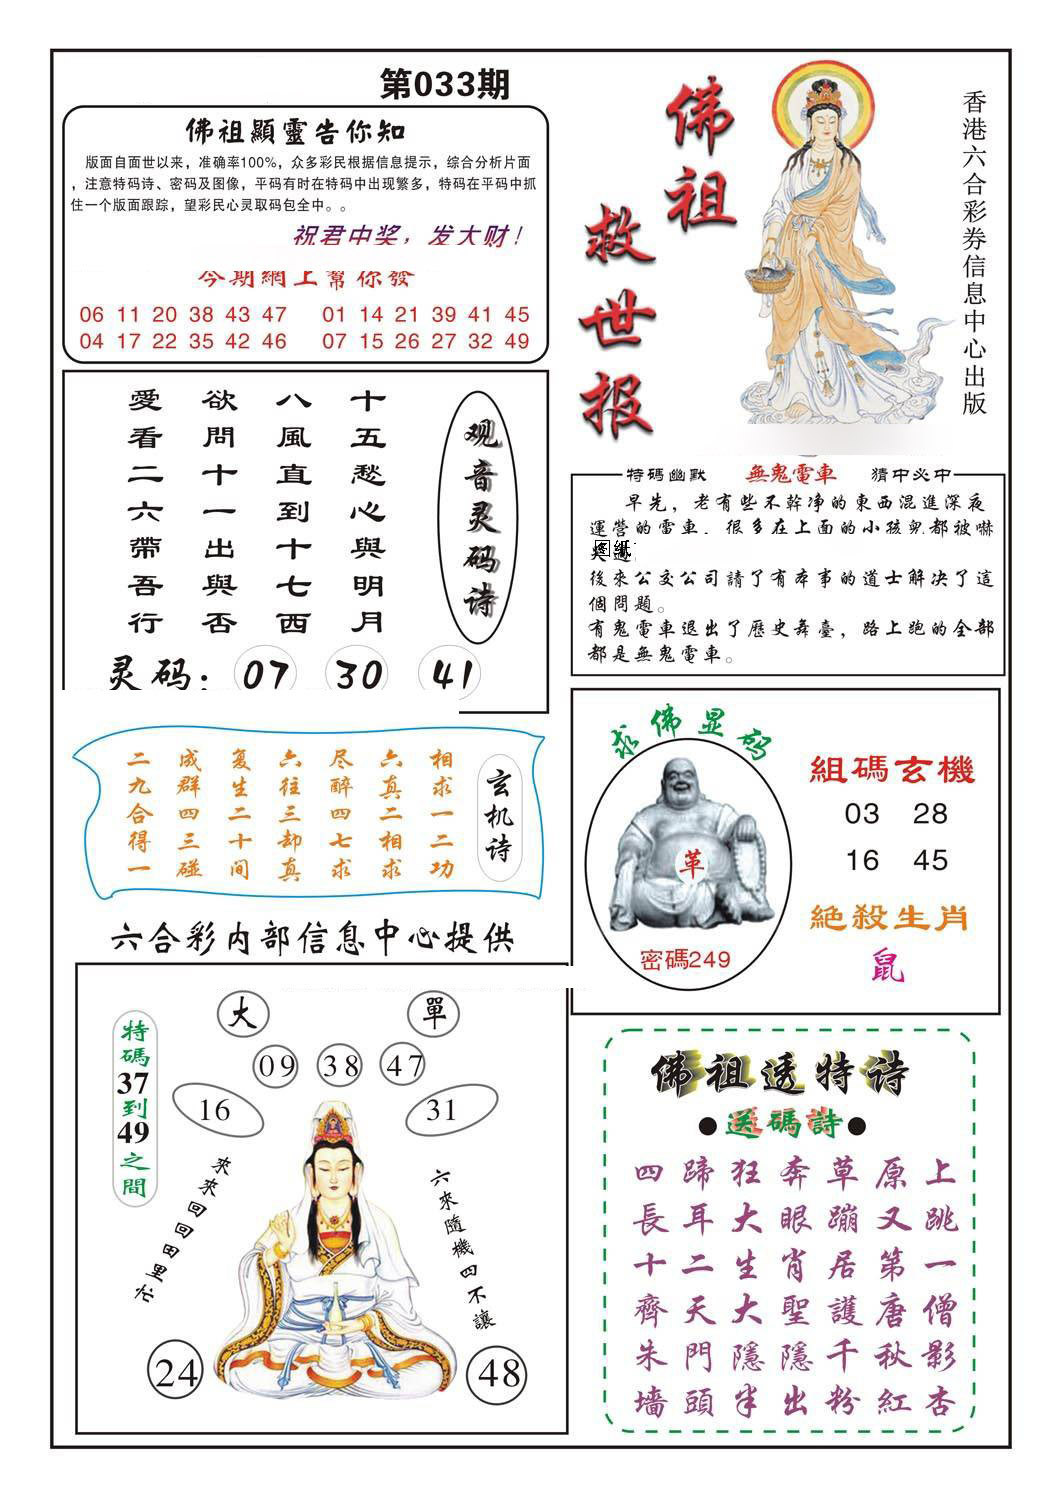 第033期
佛祖顯靈告你知
版面自面世以来，准确率100%，众多彩民根据信息提示，综合分析片面
，注意特码诗、密码及图像，平码有时在特码中出现繁多，特码在平码中抓
住一个版面跟踪，望彩民心灵取码包全中。。
祝君中奖，发大财！
今期網上幫你發
06 11 20 38 43 47 01 14 21 39 41 45
04 17 22 35 42 46 07 15 26 27 32 49
佛祖
救世报
香港六合彩券信息中心出版
观音灵码诗
十五愁心與明月
八風直到十七西
欲問十一出與否
愛看二六帶吾行
灵码：07 30 41
特碼幽默 無鬼電車 猜中必中
早先，老有些不幹净的東西混進深夜
運營的電車，很多在上面的小孩兒都被嚇
图纸
後來公交公司請了有本事的道士解决了這
個問題。
有鬼電車退出了歷史舞臺，路上跑的全部
都是無鬼電車。
玄机诗
相求一二功
六真二相求
尽醉四七求
六往三却真
复生二十间
成群四三碰
二九合得一
求佛显码
革
密碼249
組碼玄機
03 28
16 45
絕殺生肖
鼠
六合彩内部信息中心提供
大 單
09 38 47
16 31
特碼37到49之間
來來回回田里忙
六來隨機四不讓
24 48
佛祖透特诗
●送碼詩●
四蹄狂奔草原上
長耳大眼蹦又跳
十二生肖居第一
齊天大聖護唐僧
朱門隱隱千秋影
墙頭半出粉紅杏